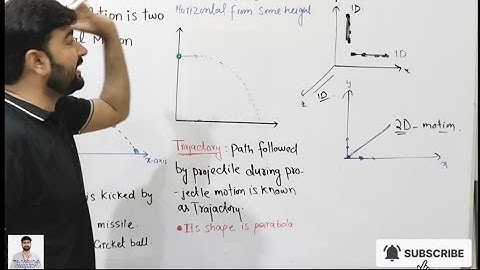 tion is two
Motion
Horizontal from some height
1D.
1D
x
z
1D
y
2D-motion.
x
x-axis
Trajactory: Path followed
by projectile during pro-
-jectile motion is known
as Trajactory.
• Its shape is parabola
is kicked by
missile.
Circket ball.
SUBSCRIBE